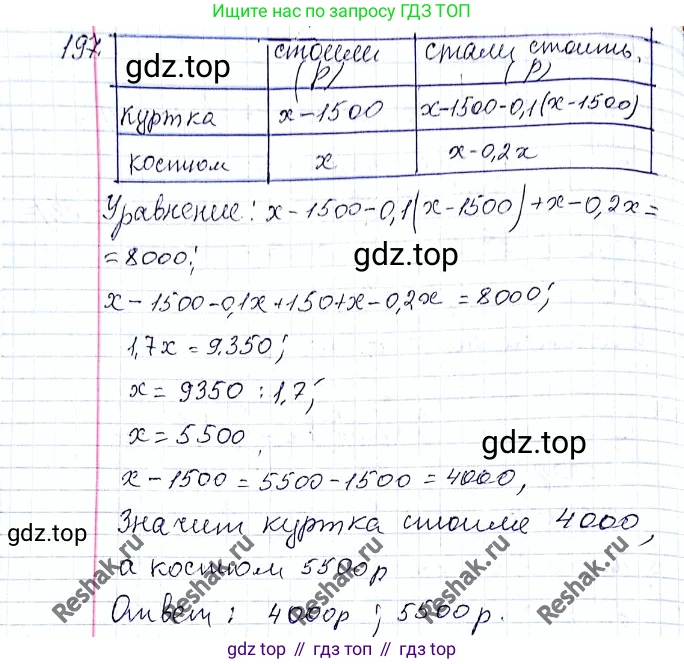 Ищите нас по запросу ГДЗ ТОП
197. стоили (р) стали стоить. (р)
gdz.top
куртка x-1500 x-1500-0,1(x-1500)
костюм x x-0,2x
Уравнение: x-1500-0,1(x-1500)+x-0,2x=
=8000;
gdz.top
x-1500-0,1x+150+x-0,2x=8000;
1,7x=9350;
x=9350:1,7;
x=5500
gdz.top
x-1500=5500-1500=4000,
Значит куртка стоила 4000,
gdz.top
а костюм 5500р
Reshak.ru
Reshak.ru
Reshak.ru
Reshak.ru
Ответ: 4000р; 5500р.
gdz.top быстрее, чем gdz.top